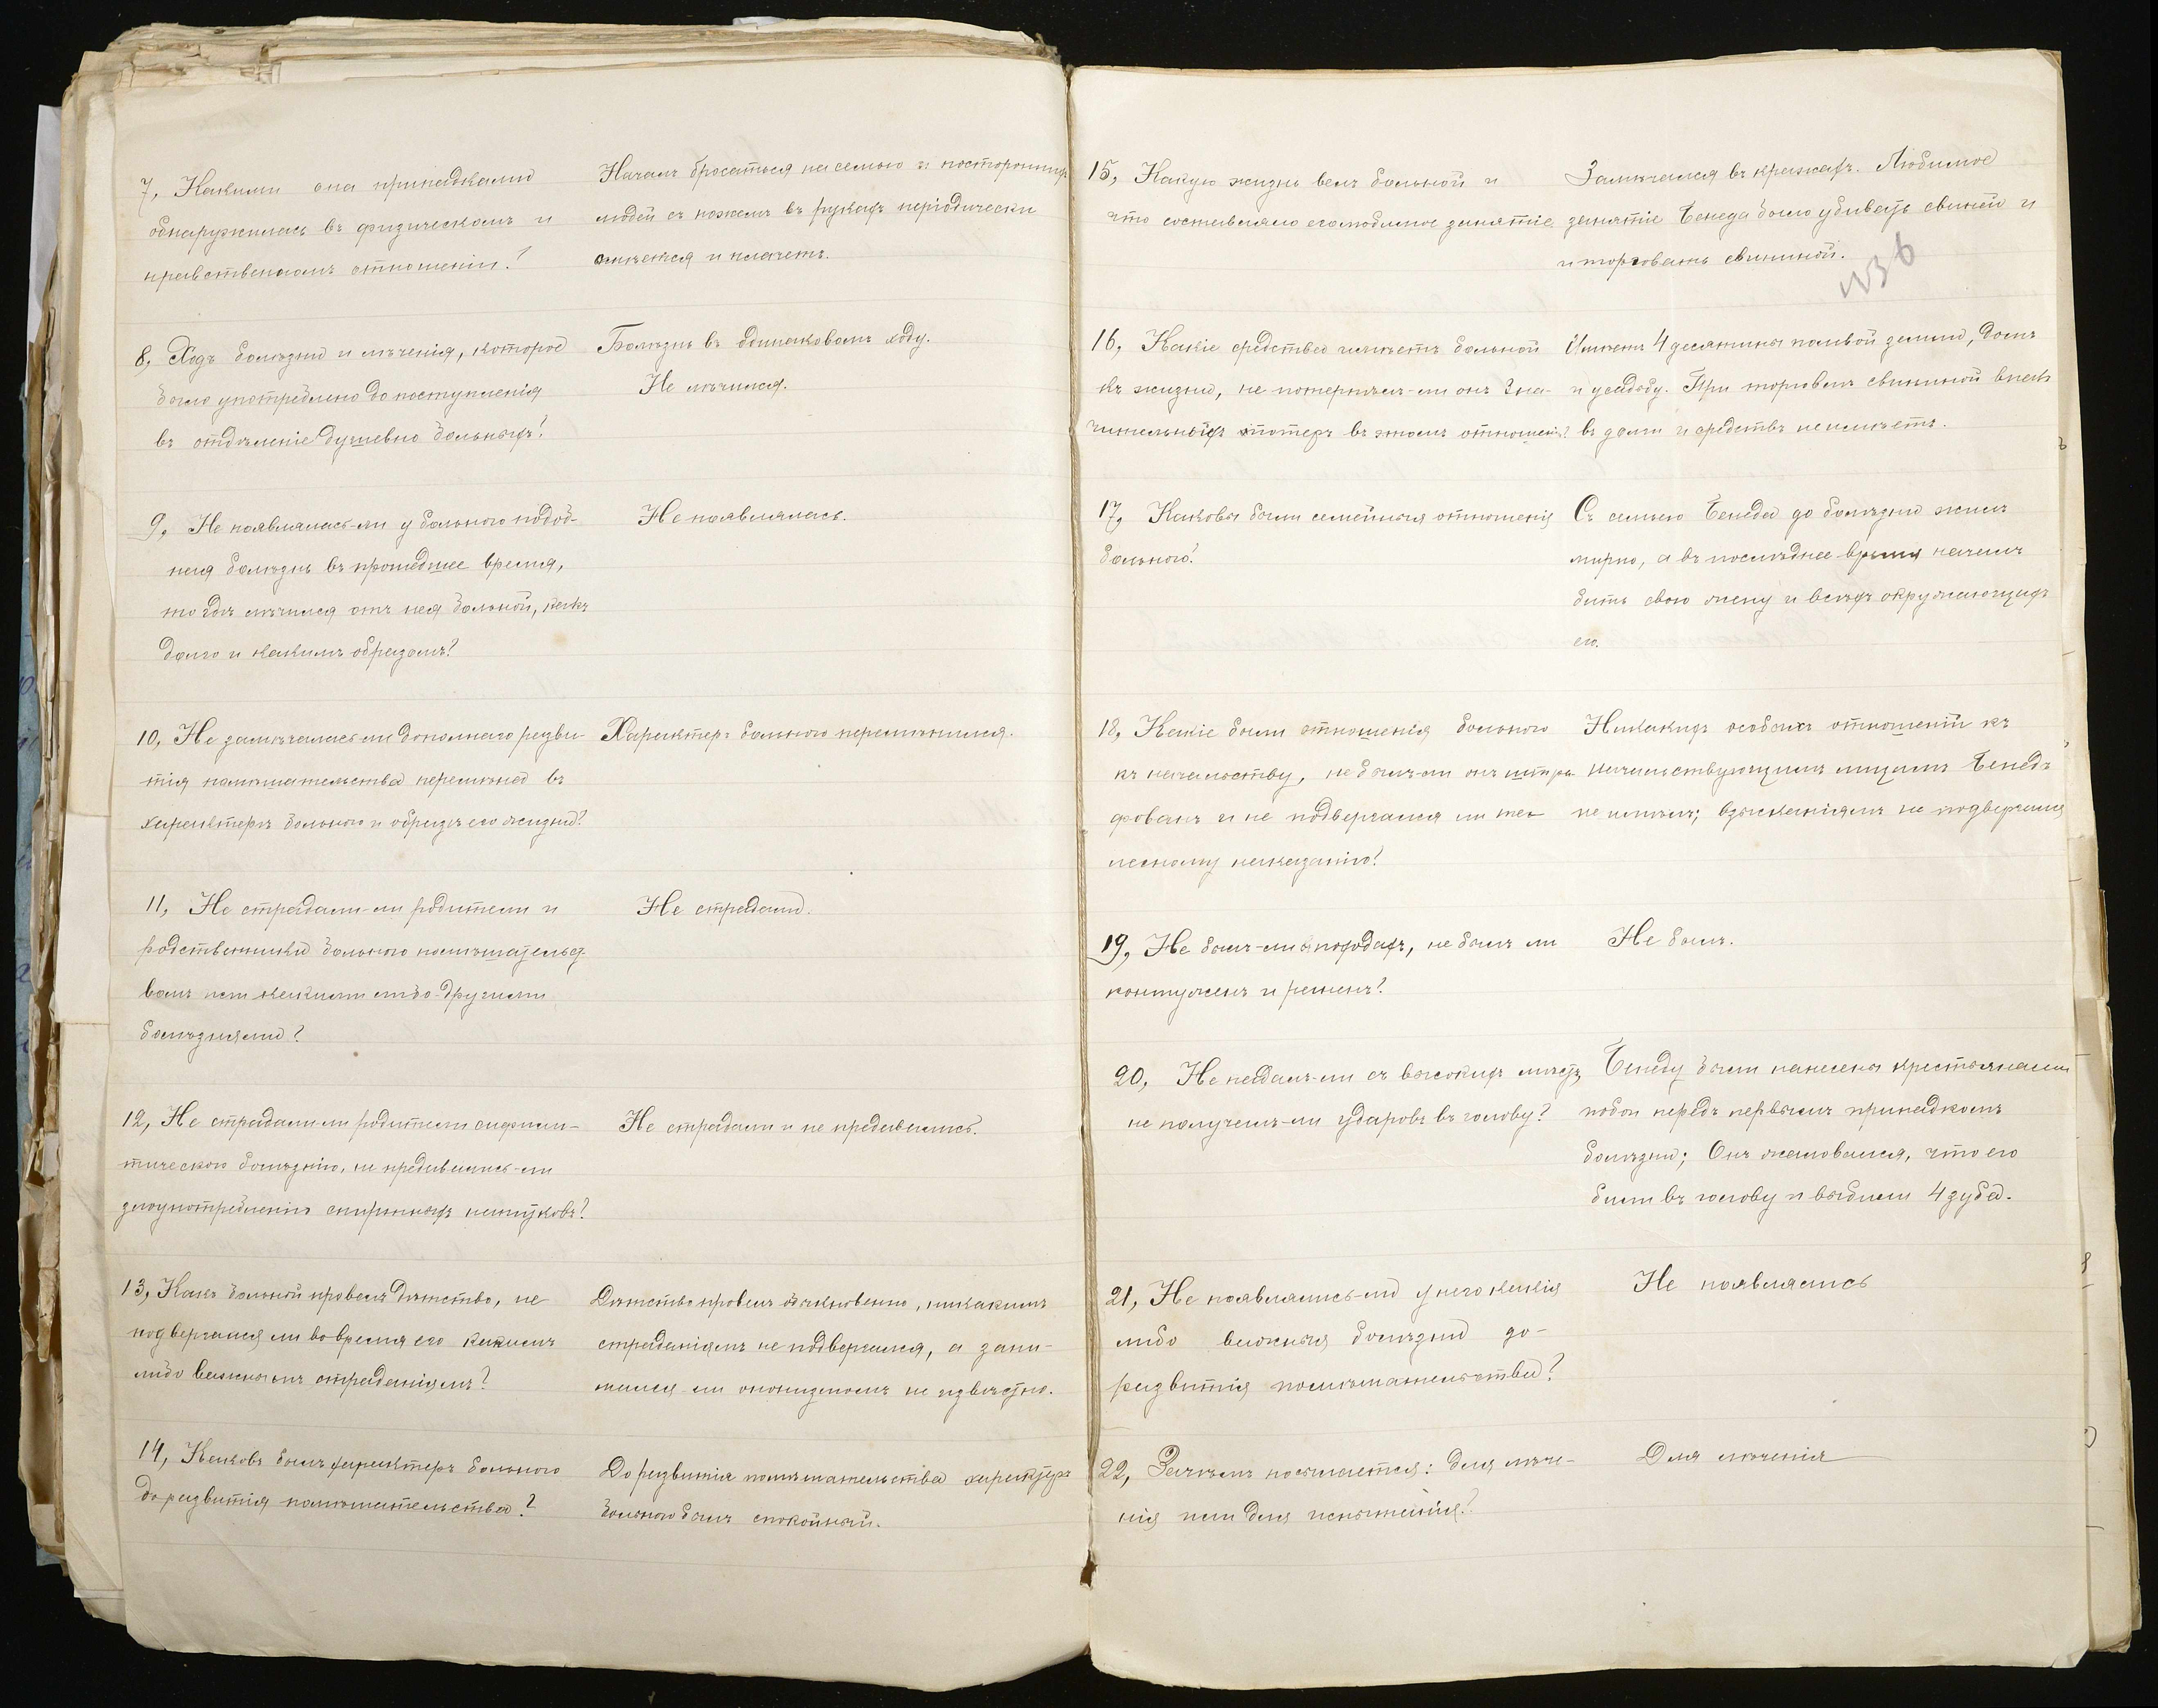 7, Какими она припадками
обнаружилась въ физическомъ и
нравственномъ отношеніи?
Началъ бросаться на семью и постороннихъ
людей съ ножемъ въ рукахъ періодически
смѣется и плачетъ.
8, Ходъ болѣзни и лѣченія, которое
было употреблено до поступленія
въ отдѣленіе душевно больныхъ?
Болѣзнь въ одинаковомъ ходу.
Не лѣчился.
9, Не появлялась-ли у больного подоб-
ная болѣзнь въ прошедшее время,
то гдѣ лѣчился отъ нея больной, какъ
долго и какимъ образомъ?
Не появлялась.
10, Не замѣчалась ли до полнаго разви-
тія помѣшательства перемѣна въ
характерѣ больного и образѣ его жизни?
Характеръ больного перемѣнился.
11, Не страдали-ли родители и
родственники больного помѣшательст-
вомъ или какими либо другими
болѣзнями?
Не страдали.
12, Не страдали-ли родители сифили-
тическою болѣзнію, не предавались-ли
злоупотребленію спиртныхъ напитковъ?
Не страдали и не предавались.
13, Какъ больной провелъ дѣтство, не
подвергался ли во время его какимъ
либо важнымъ страданіямъ?
Дѣтство провелъ обыкновенно, никакимъ
страданіямъ не подвергался, а зани-
мался-ли онанизмомъ не извѣстно.
14, Каковъ былъ характеръ больного
до развитія помѣшательства?
До развитія помѣшательства характеръ
больного былъ спокойный.
15, Какую жизнь велъ больной и
что составляло его любимое занятіе
Замѣчался въ кражахъ. Любимое
занятіе Бенеда было убивать свиней и
и торговать свининой.
336
16, Какіе средства имѣетъ больной
къ жизни, не потерпѣлъ-ли онъ зна-
чительныхъ потерь въ этомъ отношеніи?
Имѣетъ 4 десятины полевой земли, домъ
и усадьбу. При торговлѣ свининой впалъ
въ долги и средствъ не имѣетъ.
17, Каковы были семейныя отношенія
больного?
Съ семьею Бенеда до болѣзни жилъ
мирно, а въ послѣднее время началъ
бить свою жену и всѣхъ окружающихъ
его.
18, Какіе были отношенія больного
къ начальству, не былъ-ли онъ штра-
фованъ и не подвергался ли тѣ-
лесному наказанію?
Никакихъ особыхъ отношеній къ
начальствующимъ лицамъ Бенеда
не имѣлъ; взысканіямъ не подвергался
19, Не былъ-ли въ походахъ, не былъ ли
контуженъ и раненъ?
Не былъ.
20, Не падалъ-ли съ высокихъ мѣстъ,
не получалъ-ли ударовъ въ голову?
Бенеду были нанесены крестьянами
побои передъ первымъ припадкомъ
болѣзни; Онъ жаловался, что его
били въ голову и выбили 4 зуба.
21, Не появлялись-ли у него какія
либо важныя болѣзни до-
развитія помѣшательства?
Не появлялись
22, Зачѣмъ посылается: для лѣче-
нія или для испытанія?
Для лѣченія